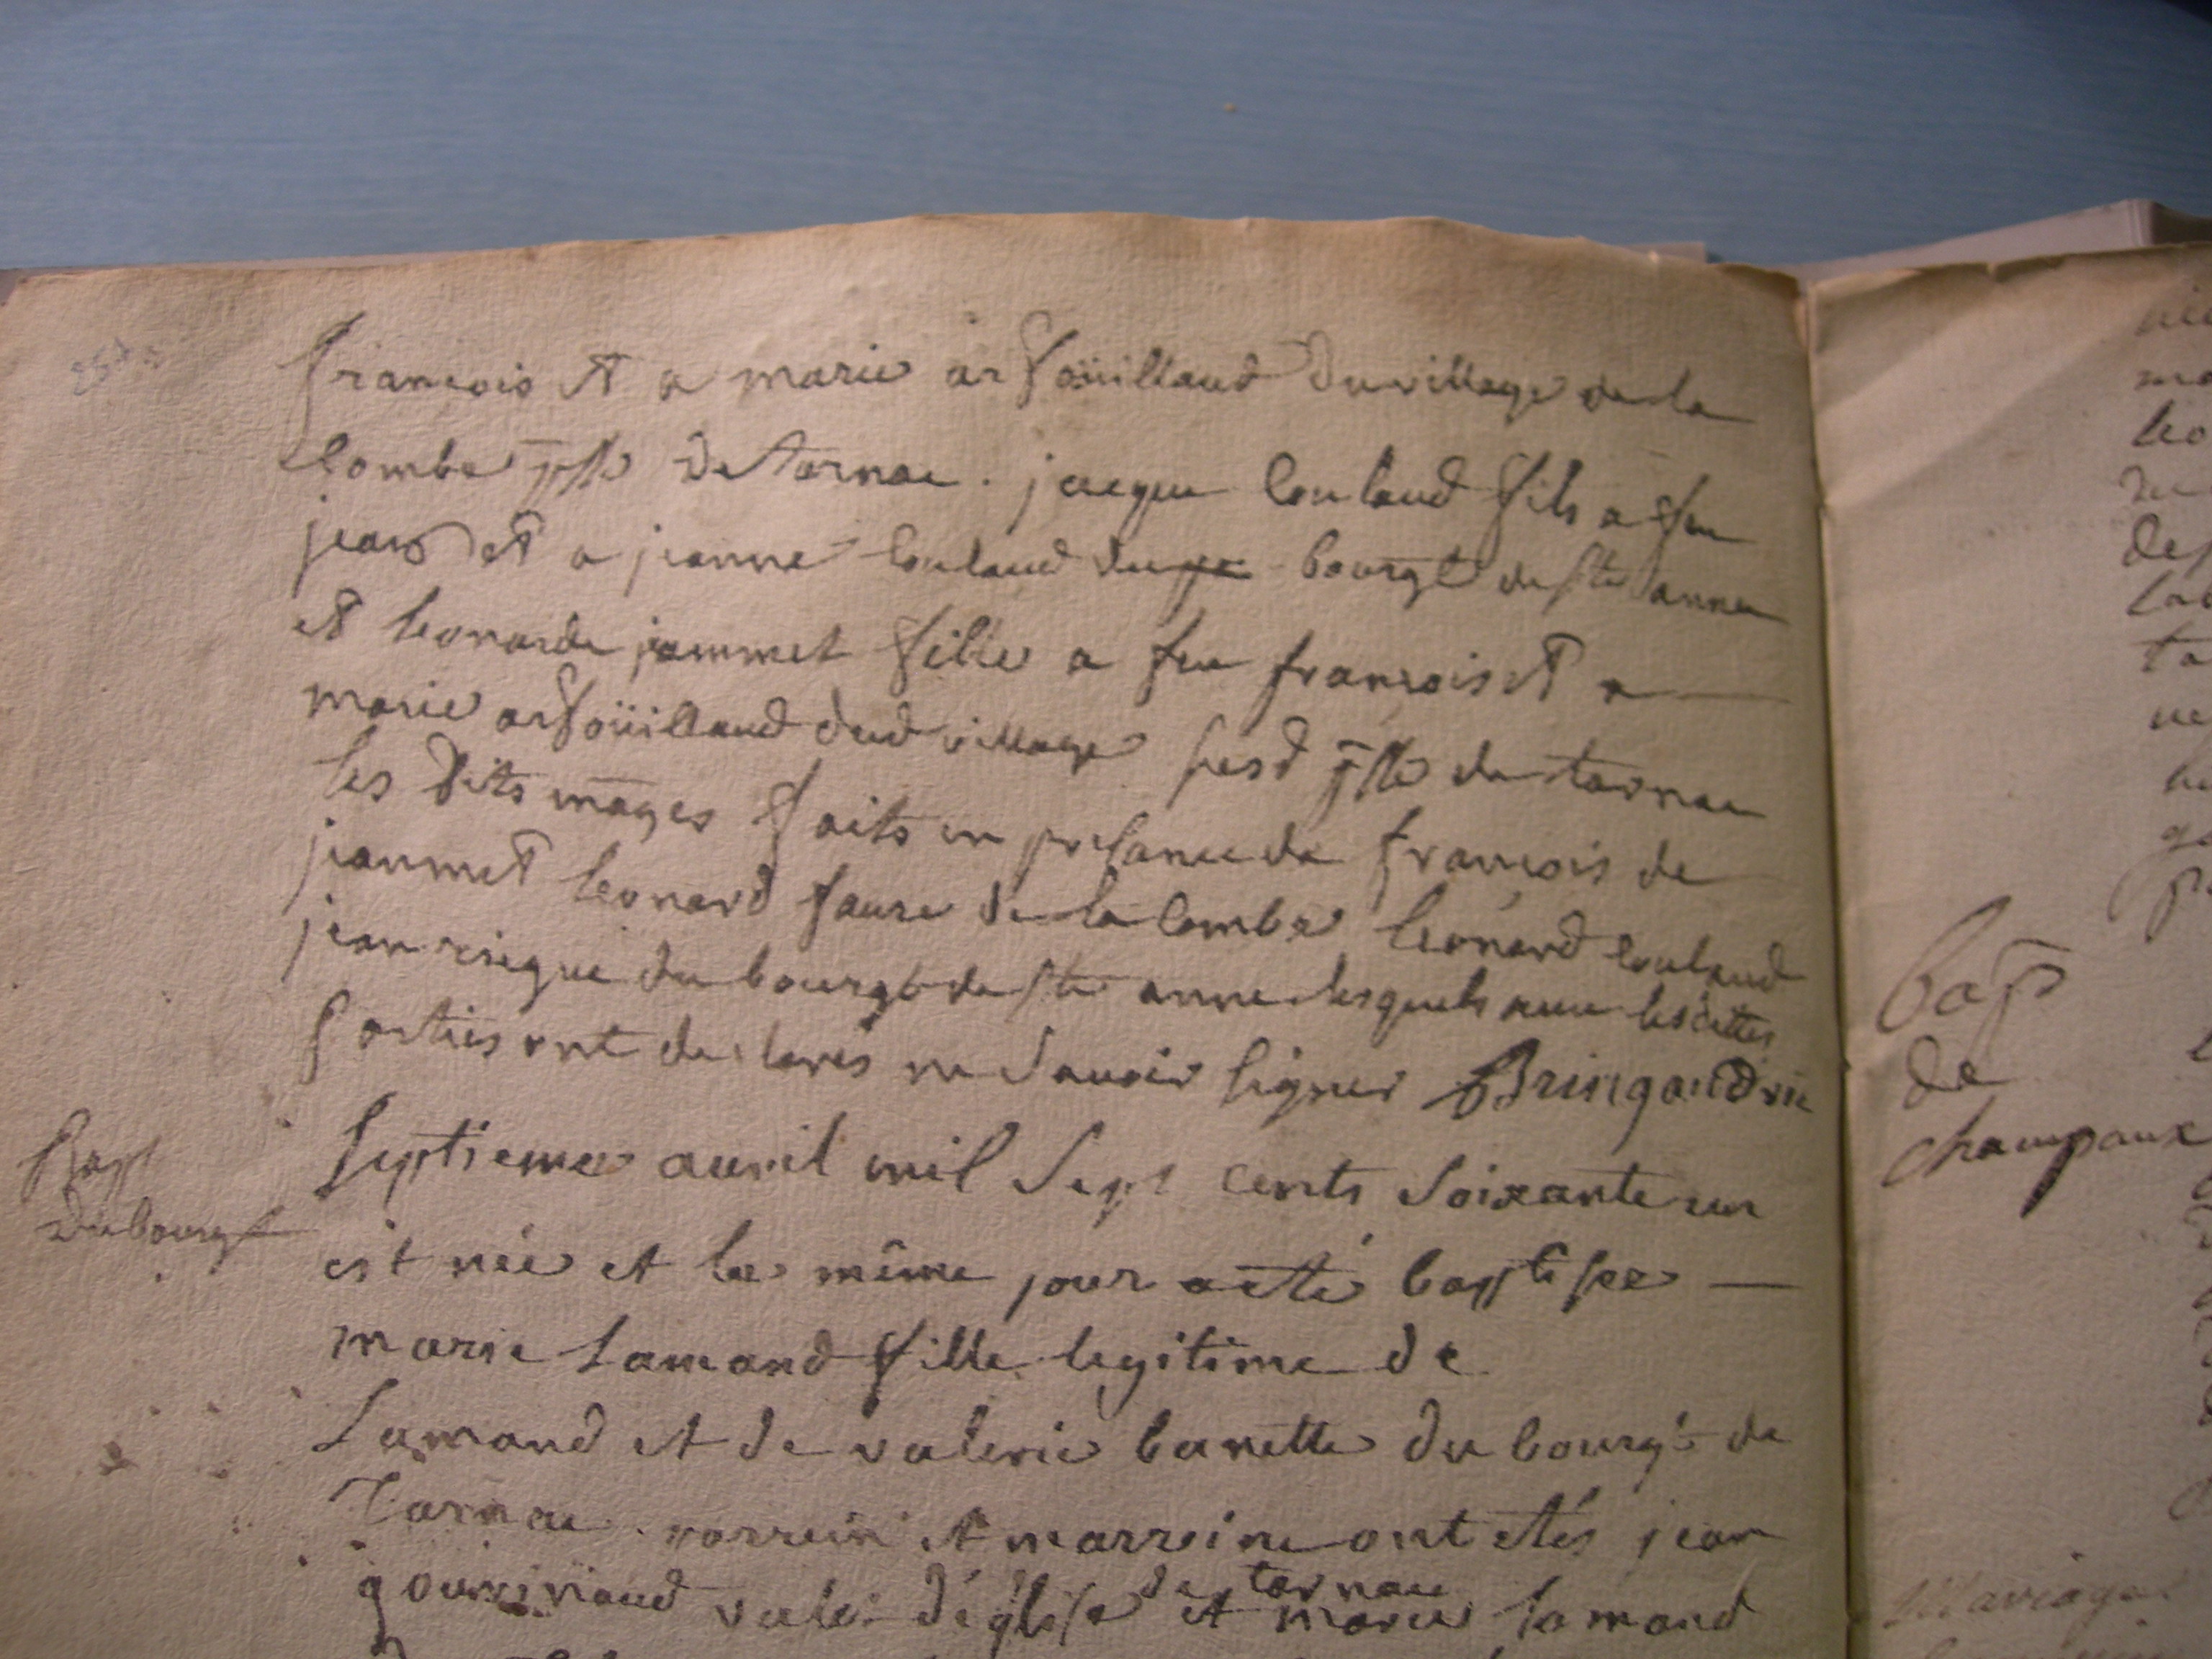 françois et a marie arfoüillaud du village de la
Combe psse de tarnac . jacque Coulaud fils a feu
jean et a jeanne Coulaud du bourgt de ste anne
et leonarde jeammet fille a feu françois et a
marie arfoüillaud dud village susd psse de tarnac
les dits mages faits en presance de françois de
jeanmet leonard faure de la Combe leonard Coulaud
jean du bourgt de ste anne lesquels avec lesdittes
parties ont declarés ne savoir signer
Bapt
du bourgt
Septieme avril mil Sept cents Soixante un
est née et le même jour a eté baptisee
marie Lamand fille legitime de
Lamand et de valerie banette du bourgt de
Tarnac . parrein et marreine ont etés jean
de tarnac
d'églisse et marie lamand
bap
de
champaux
Mariage